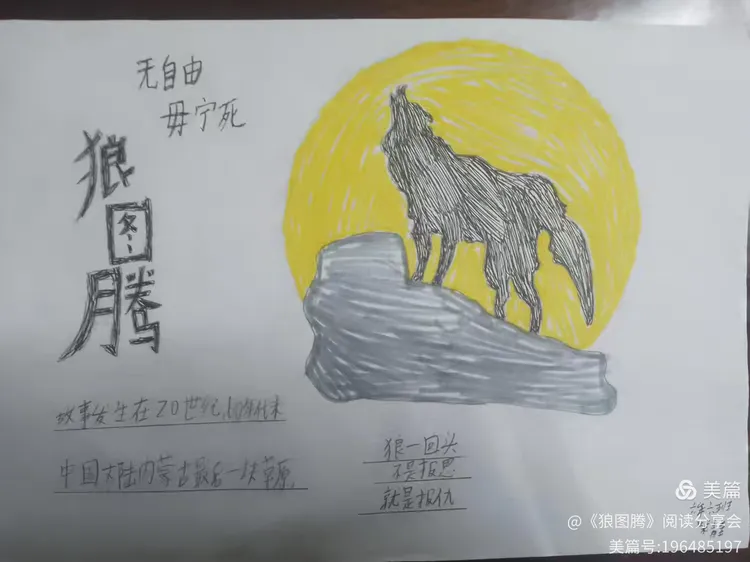 无自由
毋宁死
狼图腾
故事发生在20世纪
中国大陆内蒙古最后一块草原
狼一回头
不是报恩
就是报仇
美篇
@《狼图腾》阅读分享会
美篇号:196485197